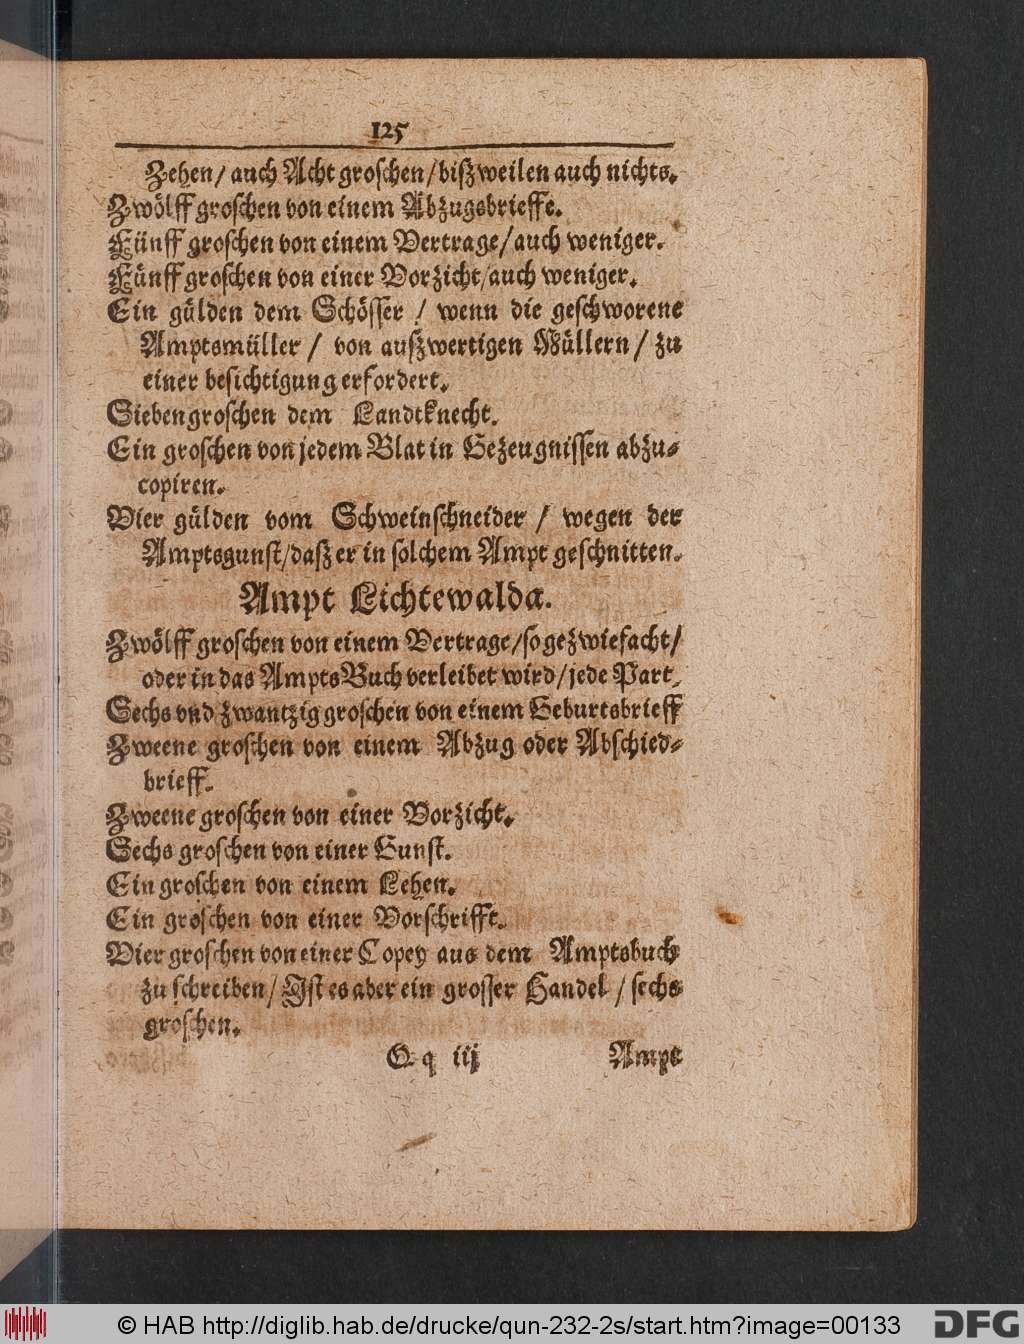 125
Zehen / auch Acht groschen / bißweilen auch nichts.
Zwölff groschen von einem Abzugsbrieffe.
Fünff groschen von einem Vertrage / auch weniger.
Fünff groschen von einer Vorzicht / auch weniger.
Ein gülden dem Schösser / wenn die geschworene
Amptsmüller / von außwertigen Müllern / zu
einer besichtigung erfordert.
Sieben groschen dem Landtknecht.
Ein groschen von jedem Blat in Gezeugnissen abzu-
copiren.
Vier gülden vom Schweinschneider / wegen der
Amptsgunst / daß er in solchem Ampt geschnitten.
Ampt Lichtewalda.
Zwölff groschen von einem Vertrage / so gezwiefacht /
oder in das AmptsBuch verleibet wird / jede Part.
Sechs vnd zwantzig groschen von einem Geburtsbrieff
Zweene groschen von einem Abzug oder Abschied-
brieff.
Zweene groschen von einer Vorzicht.
Sechs groschen von einer Gunst.
Ein groschen von einem Lehen.
Ein groschen von einer Vorschrifft.
Vier groschen von einer Copey aus dem Amptsbuch
zu schreiben / Ist es aber ein grosser Handel / sechs
groschen.
Q q iij Ampt
© HAB http://diglib.hab.de/drucke/qun-232-2s/start.htm?image=00133
DFG